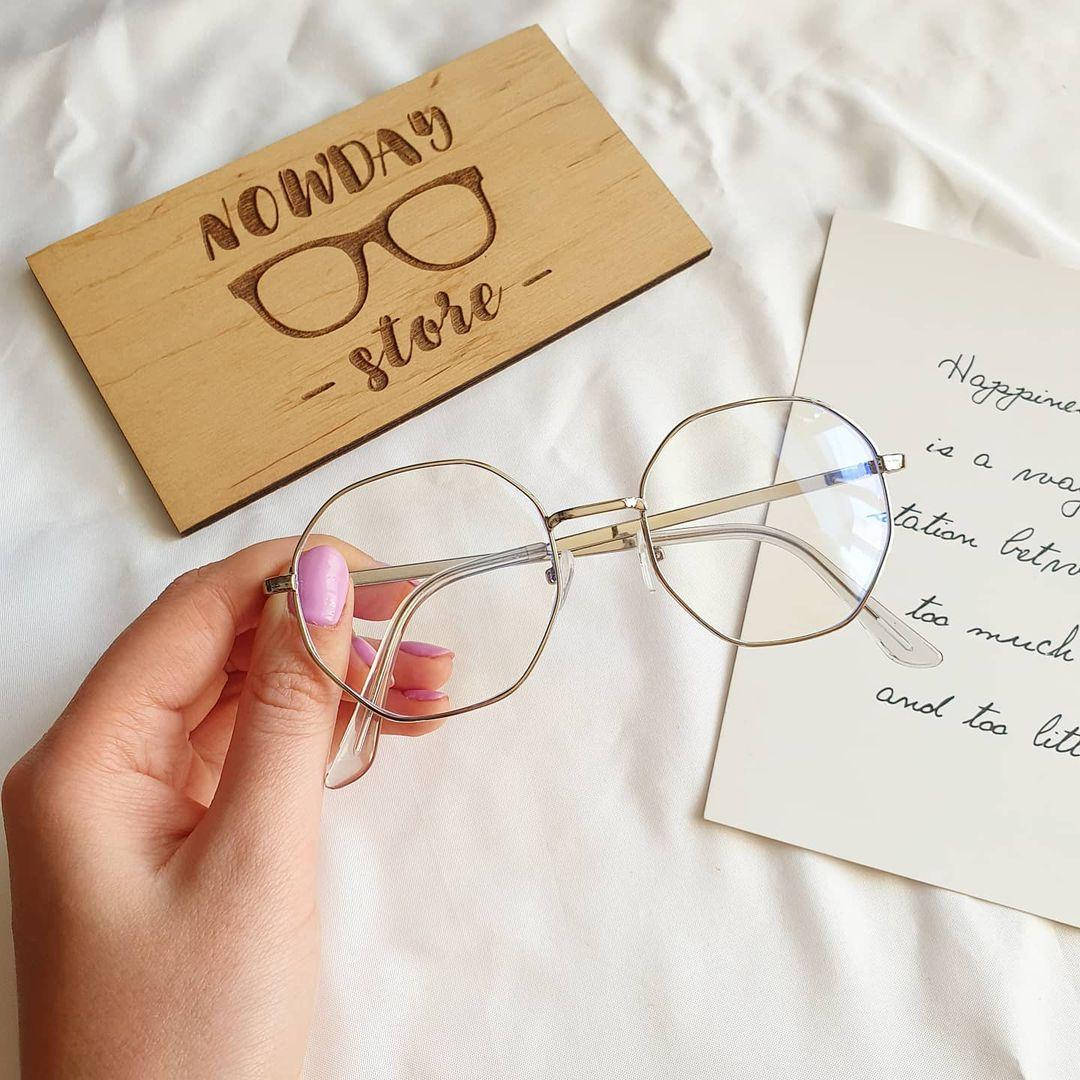 NOWDAY
- store -
Happine
is a way
tation betw
too much
and too litt